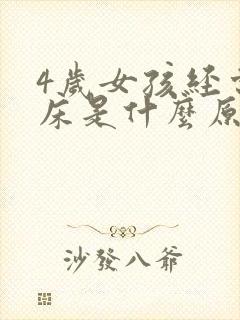 4歲女孩經常
床是什麼原
沙發八爺